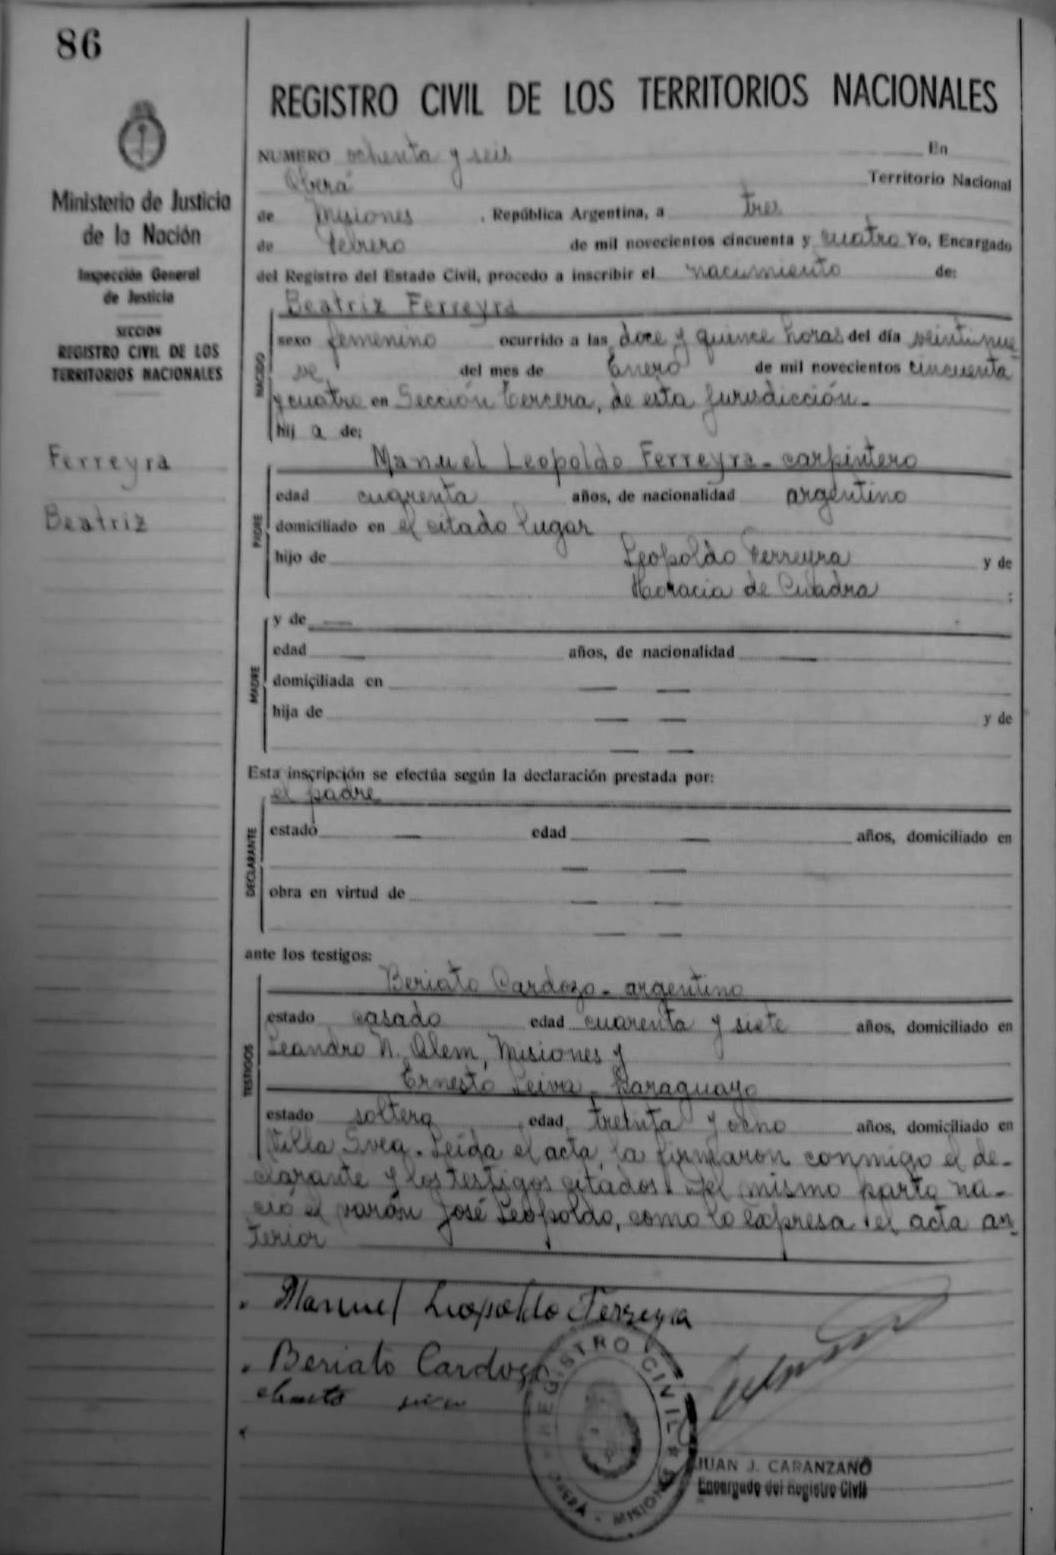 86
REGISTRO CIVIL DE LOS TERRITORIOS NACIONALES
Ministerio de Justicia
de la Nación
Inspección General
de Justicia
SECCION
REGISTRO CIVIL DE LOS
TERRITORIOS NACIONALES
Ferreyra
Beatriz
NUMERO ochenta y seis En
Oberá Territorio Nacional
de Misiones, República Argentina, a tres
de febrero de mil novecientos cincuenta y cuatro Yo, Encargado
del Registro del Estado Civil, procedo a inscribir el nacimiento de:
NACIDO
Beatriz Ferreyra
sexo femenino ocurrido a las doce y quince horas del día veintinue
ve del mes de Enero de mil novecientos cincuenta
y cuatro en Sección tercera, de esta jurisdicción.
hij a de:
PADRE
Manuel Leopoldo Ferreyra - carpintero
edad cuarenta años, de nacionalidad argentino
domiciliado en el citado lugar
hijo de Leopoldo Ferreyra y de
Horacia de Cuadra ;
MADRE
y de —
edad — años, de nacionalidad —
domiciliada en — —
hija de — — y de
— —
Esta inscripción se efectúa según la declaración prestada por:
el padre
DECLARANTE
estado — edad — años, domiciliado en
— —
obra en virtud de — —
— —
ante los testigos:
TESTIGOS
Beriato Cardozo - argentino
estado casado edad cuarenta y siete años, domiciliado en
Leandro N. Alem, Misiones y
Ernesto Leiva, paraguayo
estado soltero, edad treinta y ocho años, domiciliado en
Villa Svea. Leída el acta, la firmaron conmigo el de-
clarante y los testigos citados. Del mismo parto na-
ció el varón José Leopoldo, como lo expresa el acta an-
terior
Manuel Leopoldo Ferreyra
Beriato Cardozo
REGISTRO CIVIL
OBERÁ - MISIONES
JUAN J. CARANZANO
Encargado del Registro Civil